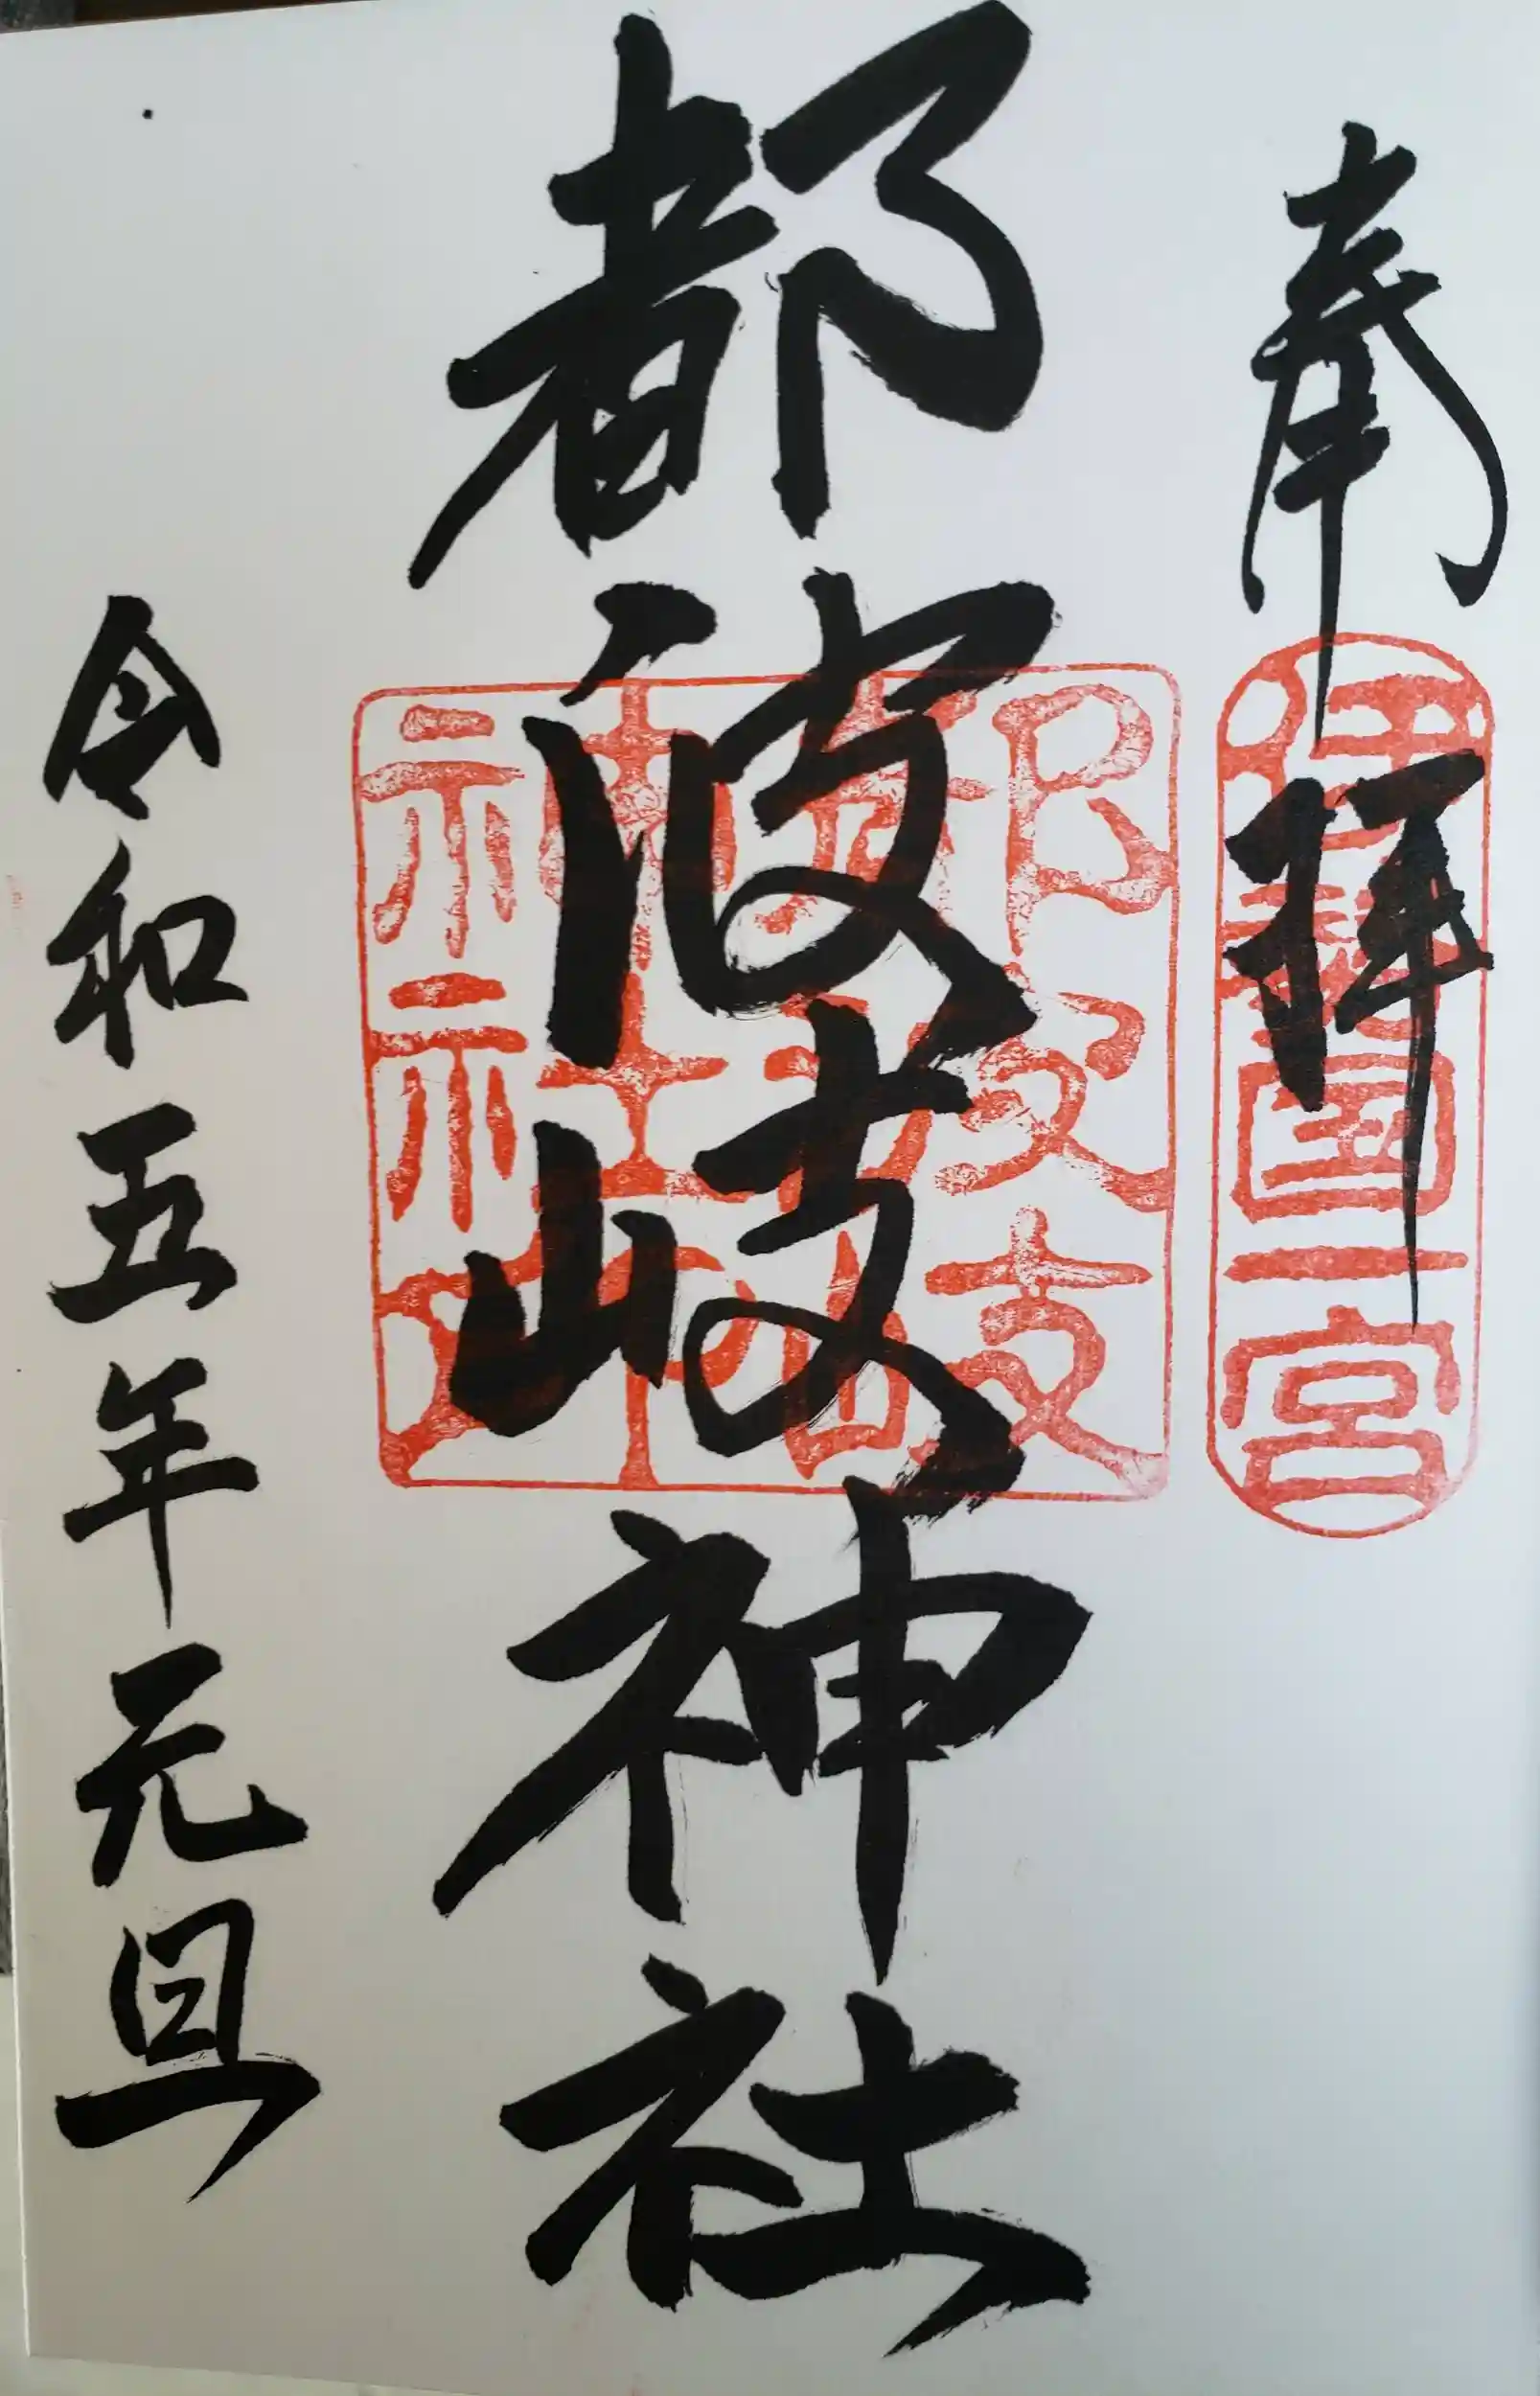 奉拝
伊勢国一宮
都波岐神社
都波岐神社
令和五年元旦